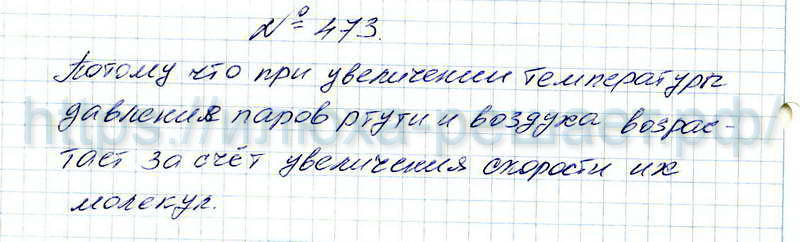 № 473.
Потому что при увеличении температуры
давления паров ртути и воздуха возрас-
тает за счёт увеличения скорости их
молекул.